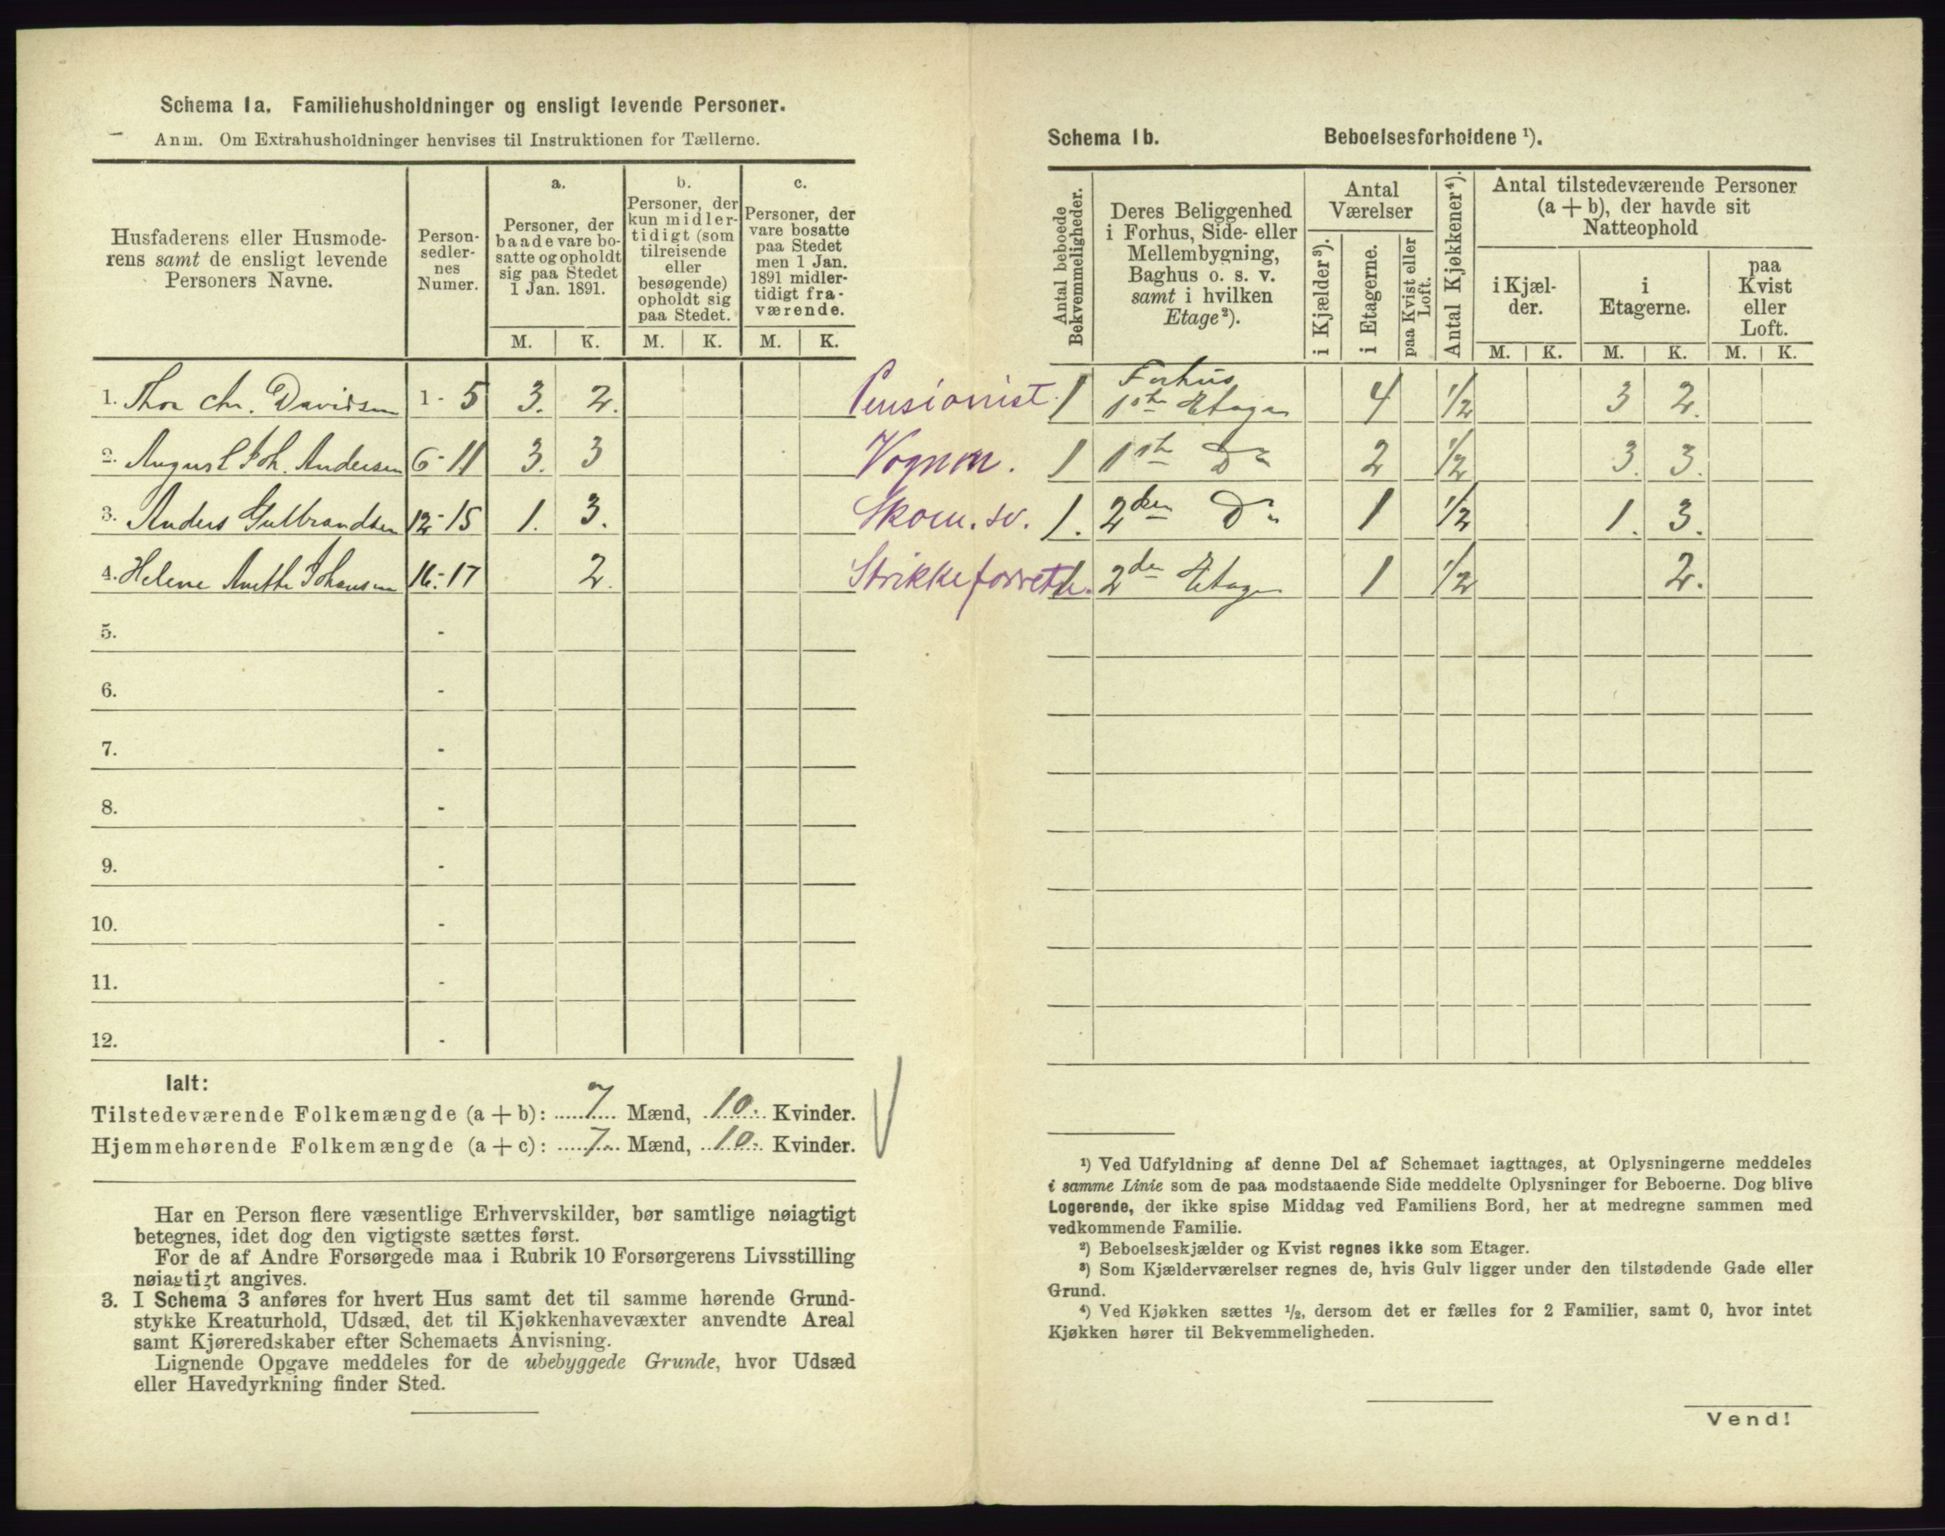 Schema 1a. Familiehusholdninger og ensligt levende Personer.
Anm. Om Extrahusholdninger henvises til Instruktionen for Tællerne.
Husfaderens eller Husmode-
rens samt de ensligt levende
Personers Navne.
Person-
sedler-
nes
Numer.
a.
Personer, der
baade vare bo-
satte og opholdt
sig paa Stedet
1 Jan. 1891.
b.
Personer, der
kun midler-
tidigt (som
tilreisende
eller
besøgende)
opholdt sig
paa Stedet.
c.
Personer, der
vare bosatte
paa Stedet
men 1 Jan.
1891 midler-
tidigt fra-
værende.
M. K. M. K. M. K.
1. Thor Chr. Davidsen 1 - 5 3. 2. Pensionist
2. August Joh. Andersen 6 - 11 3. 3 Vognm.
3. Anders Gulbrandsen 12 - 15 1. 3. Skom. sv.
4. Helene Anethe Johansen 16 - 17 2. Strikkeforretn.
5. -
6. -
7. -
8. -
9. -
10. -
11. -
12. -
Ialt:
Tilstedeværende Folkemængde (a + b): 7 Mænd, 10 Kvinder.
Hjemmehørende Folkemængde (a + c): 7 Mænd, 10 Kvinder.
Har en Person flere væsentlige Erhvervskilder, bør samtlige nøiagtigt
betegnes, idet dog den vigtigste sættes først.
For de af Andre Forsørgede maa i Rubrik 10 Forsørgerens Livsstilling
nøiagtigt angives.
3. I Schema 3 anføres for hvert Hus samt det til samme hørende Grund-
stykke Kreaturhold, Udsæd, det til Kjøkkenhavevæxter anvendte Areal
samt Kjøreredskaber efter Schemaets Anvisning.
Lignende Opgave meddeles for de ubebyggede Grunde, hvor Udsæd
eller Havedyrkning finder Sted.
Schema 1b. Beboelsesforholdene ¹).
Antal beboede
Bekvemmeligheder.
Deres Beliggenhed
i Forhus, Side- eller
Mellembygning,
Baghus o. s. v.
samt i hvilken
Etage²).
Antal
Værelser
i Kjælder³).
i Etagerne.
paa Kvist eller
Loft.
Antal Kjøkkener⁴).
Antal tilstedeværende Personer
(a + b), der havde sit
Natteophold
i Kjæl-
der.
i
Etagerne.
paa
Kvist
eller
Loft.
M. K. M. K. M. K.
1 Forhus
1ste Etage 4 1/2 3 2.
1 1ste Do 2 1/2 3. 3.
1. 2den Do 1 1/2 1. 3.
1 2den Etage 1 1/2 2.
¹) Ved Udfyldning af denne Del af Schemaet iagttages, at Oplysningerne meddeles
i samme Linie som de paa modstaaende Side meddelte Oplysninger for Beboerne. Dog blive
Logerende, der ikke spise Middag ved Familiens Bord, her at medregne sammen med
vedkommende Familie.
²) Beboelseskjælder og Kvist regnes ikke som Etager.
³) Som Kjælderværelser regnes de, hvis Gulv ligger under den tilstødende Gade eller
Grund.
⁴) Ved Kjøkken sættes 1/2, dersom det er fælles for 2 Familier, samt 0, hvor intet
Kjøkken hører til Bekvemmeligheden.
Vend!